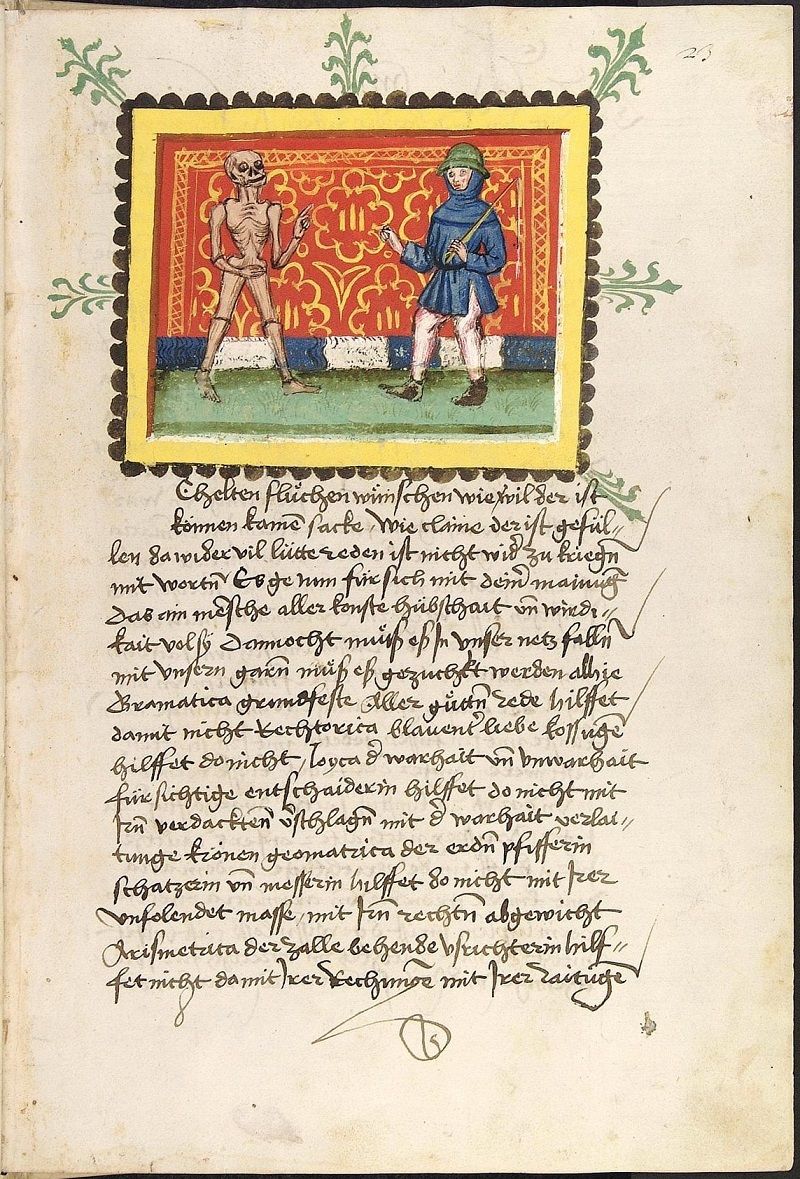 23
Chelten fluchen wünschen wie vil der ist
können kainē sacke, wie claine der ist gefül-
len da wider vil lütte reden ist nicht wid' zu kriegn̄
mit wortn̄ Es ge nun für sich mit dein' mainūg
Das ain mēsche aller konste hübschait vn̄ wirdi-
kait vol sÿ Dannocht muͦß eß In vnser netz falln̄
mit vnsern garn̄ muͦß eß gezuchkt werden allhie
Gramatica grundfeste Aller guͦttn̄ rede hilffet
damit nicht Rechtorica blauent' liebe kossugē
hilffet do nicht, loyca d' warhait vn̄ vnwarhait
fürsichtige entschaiderin hilffet do nicht mit
Irn̄ verdacktem̄ v'schlagn̄ mit d' warhait verlai-
tunge krönen geomatrica der erdn̄ pfifferin
schatzerin vn̄ messerin hilffet do nicht mit Irer
vnfolendet masse, mit Irn̄ rechtn̄ abgewicht
Arismetrica der zalle behende vsrichterin hilf-
fet nicht da mit Irer Rechnungē mit Irer raitūgē